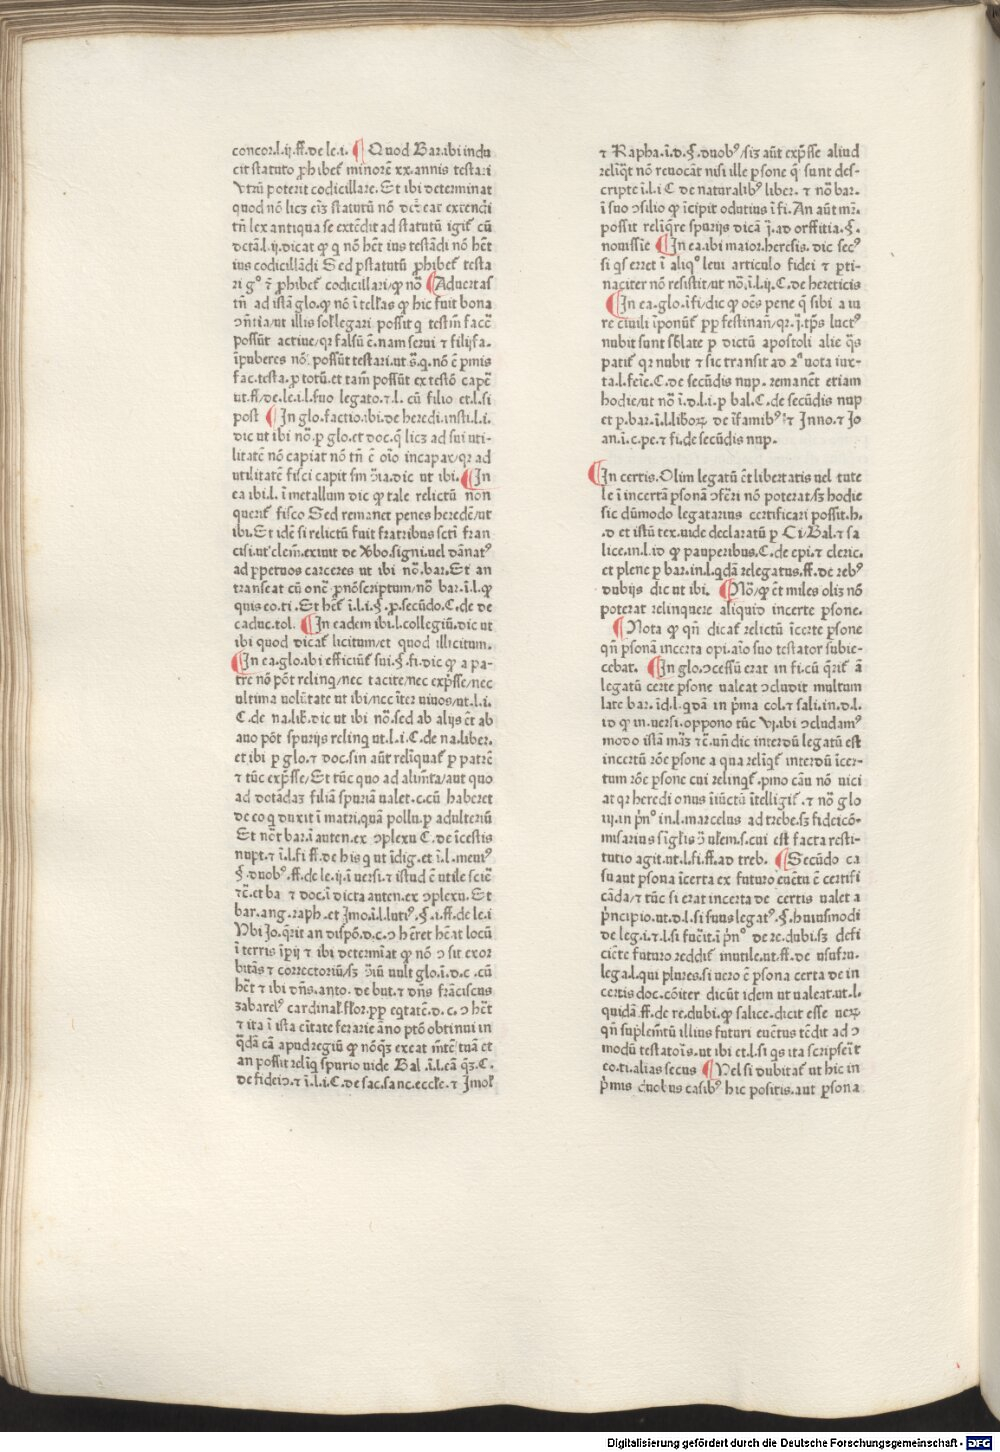 concor.l.ij.ff.de le.i. ¶ Quod Bar.ibi indu
cit statuto ꝓhibet᷑ minorē xx.annis testari
vtrū poterit codicillare. Et ibi determinat
quod nō licꝫ eīꝫ statutū nō debeat extendi
tn̄ lex antiqua se extēdit ad statutū igit᷑ cū
dctā.l.ij.dicat ꝙ q nō hēt ius testādi nō hēt
ius codicillādi Sed ꝑstatutū ꝓhibet᷑ testa
ri gͦ ꝛ̄ ꝓhibet᷑ codicillari/ꝙ nō ¶ Aduertas
tn̄ ad istā glo.ꝙ nō ītellas ꝙ hic fuit bona
ꝯn̄tia/ut illis sol᷑legari possit q testīn facē
possūt actiue/qꝛ falsū ē.nam serui ⁊ filijfa.
īpuberes nō possūt testari.ut s̄.q.nō ē ꝑmis
fac.testa.ꝑ totū.et tam̄ possūt ex testō capē
ut.ff/de.le.i.l.suo legato.⁊.l. cū filio et.l.si
post ¶ In glo.factio.ibi.de heredi.insti.l.i.
dic ut ibi nō.ꝑ glo.et doc.q̄ licꝫ ad sui uti-
litatē nō capiat nō tn̄ ē oīo incapax/qꝛ ad
utilitatē fisci capit fm ꝯ̄ia.dic ut ibi. ¶ In
ea ibi.l. ī metallum dic ꝙ tale relictū non
querit᷑ fisco Sed remanet penes heredē/ut
ibi.Et idē si relictū fuit fratribus scti fran
cisi.ut clem̄.exiuit de v̄bo.signi.uel dānatꝰ
ad ꝑpetuos carceres ut ibi nō.bar.Et an
transeat cū onē ꝓnō scriptum/nō bar.ī.l.ꝙ
quis eo.ti. Et het᷑ ī.l.i.§.ꝓ secūdo.C.de de
caduc.tol. ¶ In eadem ibi.l.collegiū.dic ut
ibi quod dicat᷑ licitum/et quod illicitum.
¶ In ea.glo.ibi efficiunt᷑ sui.§.fi.dic ꝙ a pa-
tre nō pōt relinq̄/nec tacite/nec exp̄sse/nec
ultima volūtate ut ibi/nec īter uiuos/ut.l.i.
C.de na.lib̄.dic ut ibi nō.sed ab alijs ēt ab
auo pōt spurijs relinq̄ ut.l.i.C.de na.liber.
et ibi ꝑ glo.⁊ doc.sin aūt relīquat᷑ ꝑ patrē
⁊ tūc exp̄sse/Et tūc quo ad alim̄ta/aut quo
ad dotādaꝫ filiā spuriā ualet.c.cū haberet
de eo q duxit ī matri.quā pollu.ꝑ adulteriū
Et nōt bar.ī auten.ex ꝯplexu C. de īcestis
nupt.⁊ ī.l.fi ff.de his q ut īdig.et ī.l.meuiꝰ
§.duobꝰ.ff.de le.ij.ī uersi.⁊ istud ē utile sciē
⁊c̄.et ba ⁊ doc.ī dicta auten.ex ꝯplexu.Et
bar.ang.raph.et Imo.ī.l.lutiꝰ.§.i.ff.de le.i
Vbi Jo.q̄rit an dispōn.d.c.ꝯ hēret hēat locū
ī terris īpij ⁊ ibi determīat ꝙ nō ꝯ sit exor
bitās ⁊ correctoriū/sꝫ ꝯ̄iū uult glo.ī.d.c .cū
hēt ⁊ ibi dn̄s.anto. de but.⁊ dn̄s frāciscus
ꝫabarelꝰ cardinal᷑.flor.ꝑp eq̄tatē.d.c.ꝯ hēt
⁊ ita ī ista cītate ferarie āno ptō obtinui in
q̄dā cā apud regiū ꝙ nōqꝫ exeat mētē tuā et
an possit relīq̄ spurio uide Bal .ī.l.eā q̄ꝫ.C.
de fideiꝯ.⁊ ī.l.i.C.de sac.sanc.eccle.⁊ Imol᷑
⁊ Rapha.ī.d.§.duobꝰ/siꝫ aūt exp̄sse aliud
relīq̄t nō reuocāt nisi ille ꝑsone q̄ sunt des-
cripte ī.l.i C de naturalibꝰ liber. ⁊ nō bar.
ī suo ꝯsilio ꝙ īcipit odutius ī fi.An aūt mr̄.
possit relīq̄re spurijs dicā ī.ad orffitia.§.
nouissīe ¶ In ea.ibi maior.heresis.dic secꝰ
si q̄s erret ī aliqͦ leui articulo fidei ⁊ ꝑti-
naciter nō resistit/ut nō.ī.l.ij.C.de hereticis
¶ In ea.glo.ī fi/dic ꝙ oēs pene q̄ sibi a iu
re ciuili īponūt᷑ ꝑp festinan̄/qꝛ.ī.tp̄s luctꝰ
nubit sunt sblate ꝑ dictū apostoli alie q̄s
patit᷑ qꝛ nubit ⁊ sic transit ad 2ᵃ uota iux-
ta.l.feīe.C.de secūdis nup. remanēt etiam
hodie/ut nō ī.d.l.i.ꝑ bal.C.de secūdis nup
et ꝑ.bar.ī.l.liboꝝ de īfamibꝰ ⁊ Inno.⁊ Jo
an.ī.c.pe.⁊ fi.de secūdis nup.
¶ In certis.Olim legatū ēt libertatis uel tute
le ī incertā ꝑsonā ꝯfēri nō poterat/sꝫ hodie
sic dūmodo legatarius certificari possit.h.
.d et istū tex.uide declaratū ꝑ Ci.Bal.⁊ sa
lice.in.l.id ꝙ pauperibus.C.de epi.⁊ cleric.
et plene ꝑ bar.in.l.q̄dā relegatus.ff.de rebꝰ
dubijs dic ut ibi. ¶ Nō/ꝙ ēt miles olīꝫ nō
poterat relinquere aliquid incerte ꝑsone.
¶ Nota ꝙ qn̄ dicat᷑ relictū īcerte ꝑsone
qn̄ ꝑsonā incerta opi.aīo suo testator subie-
cebat. ¶ In glo.ꝯcessū erat in fi.cū q̄rit᷑ ā
legatū certe ꝑsone ualeat ꝯcludit multum
late bar.īd.l.q̄dā in p̄ma col.⁊ sali.in.d.l.
id ꝙ in.uersi.oppono tūc vj.ibi ꝯcludamꝰ
modo istā māꝫ ⁊c̄.un̄ dic interdū legatū est
incertū rōe ꝑsone a qua relīq̄t᷑ interdū īcer-
tum rōe ꝑsone cui relinq̄t᷑.pmo cāu nō uici
at qꝛ heredi onus īiūctū ītelligit᷑.⁊ nō glo
iij.in p̄nͦ in.l.marcelus ad trebe.sꝫ fideicō-
misarius sīglis ꝯ̄ ulem̄.s.cui est facta resti-
tutio agit.ut.l.fi.ff.ad treb. ¶ Secūdo ca
su aut ꝑsona īcerta ex futuro euētu ē certifi
cāda/⁊ tūc si erat incerta de certis ualet a
p̄ncipio.ut.d.l.si fuus legatꝰ.§.huiusmodi
de leg.i.⁊.l.si fuēit.ī p̄nͦ de re.dubi.sꝫ defi
ciēte futuro reddit᷑ inutile.ut.ff.de usufru.
lega.l.qui plures.si uero ē ꝑsona certa de in
certis doc.cōiter dicūt idem ut ualeat.ut.l.
quidā.ff.de re.dubi.ꝙ salice.dicit esse ueꝝ
qn̄ suplem̄tū illius futuri euētus tēdit ad ꝯ
modū testatoīs.ut ibi et.l.si q̄s ita scripseīt
eo.ti.alias secus ¶ Vel si dubitat᷑ ut hic in
p̄mis duobus casibꝰ hic positis.aut ꝑsona
Digitalisierung gefördert durch die Deutsche Forschungsgemeinschaft - DFG